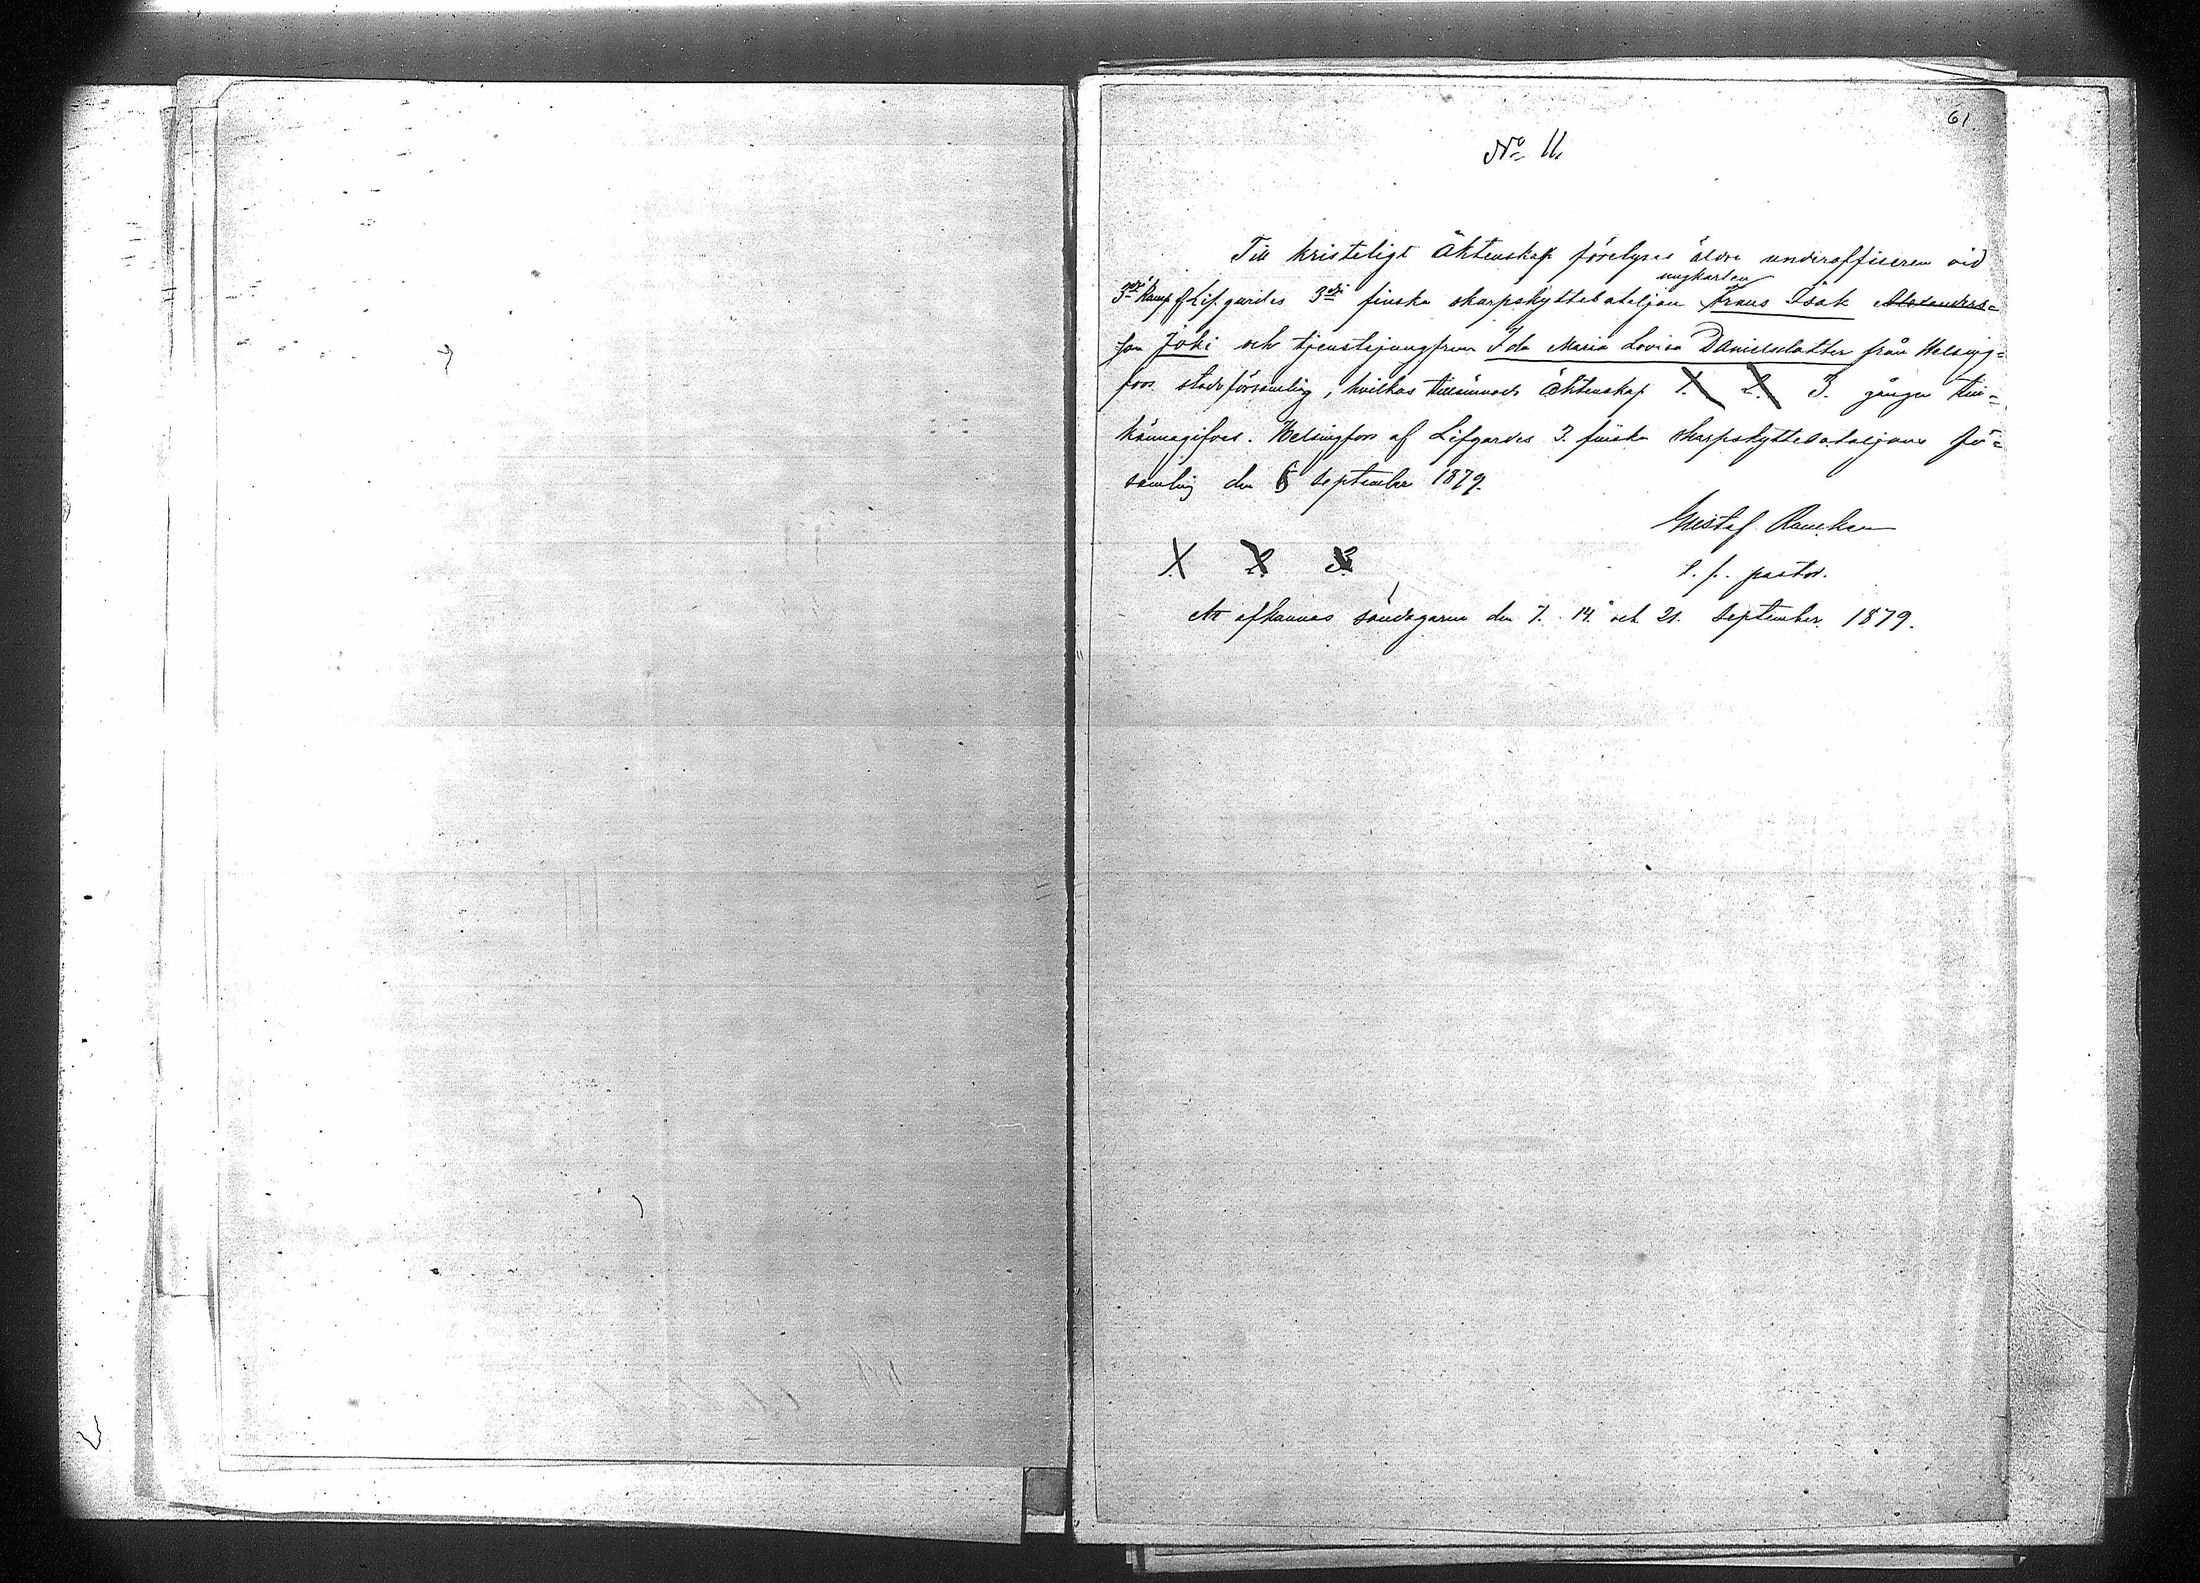 61.
No 11.
Till kristeligt äktenskap förelyses äldre underofficeren vid
ungkarlen
3dje Komp af Lifgardes 3dje finska skarpskyttebataljon Frans Isak Alexanders-
son Joki och tjenstejungfrun Ida Maria Lovisa Danielsdotter från Helsing-
fors stadsförsamling, hvilkas tillämnade äktenskap 1. 2. 3. gången till-
kännagifves. Helsingfors af Lifgardes 3. finska skarpskyttebataljons för-
samling den 6 September 1879.
Gustaf
t. f. pastor.
1. 2. 3.
Att afkunnas söndagarna den 7. 14. och 21. September 1879.